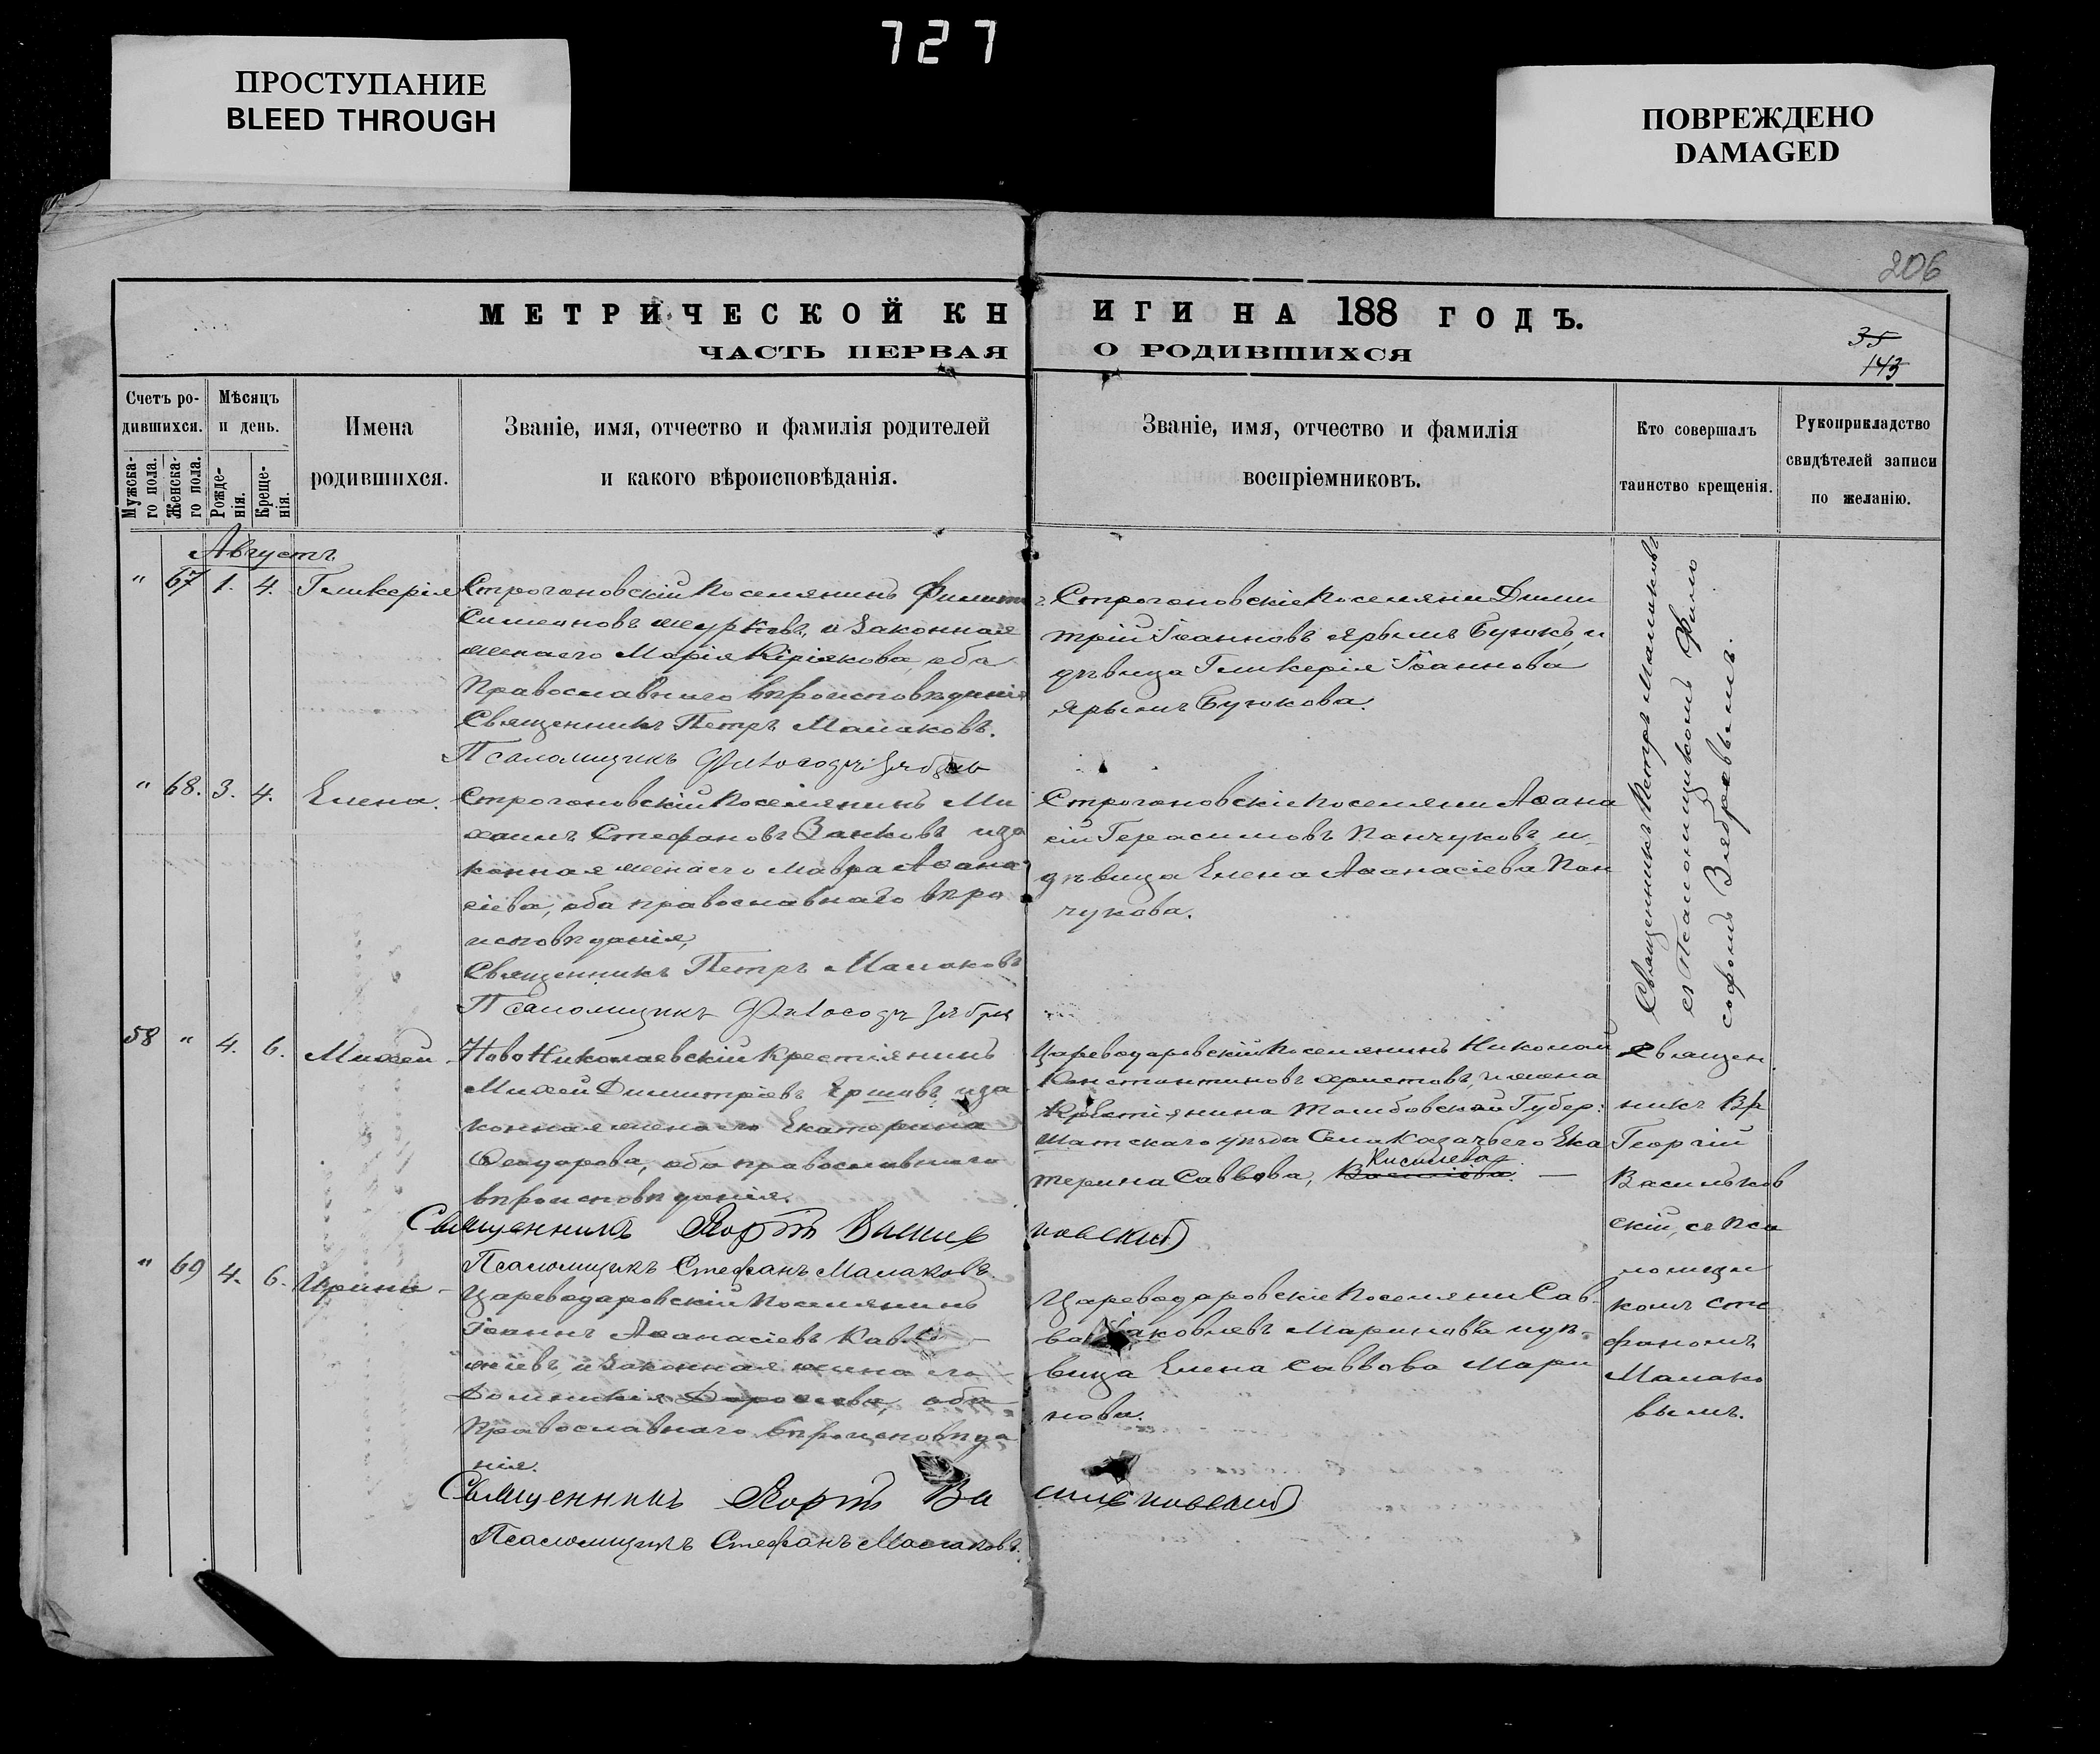 727
ПРОСТУПАНИЕ
BLEED THROUGH
ПОВРЕЖДЕНО
DAMAGED
206
МЕТРИЧЕСКОЙ КНИГИ НА 188 ГОДЪ.
ЧАСТЬ ПЕРВАЯ О РОДИВШИХСЯ
35
143
Счетъ родившихся.
Мужскаго пола.
Женскаго пола.
Мѣсяцъ и день.
Рожденія.
Крещенія.
Имена
родившихся.
Званіе, имя, отчество и фамилія родителей
и какого вѣроисповѣданія.
Званіе, имя, отчество и фамилія
воспріемниковъ.
Кто совершалъ
таинство крещенія.
Рукоприкладство
свидѣтелей записи
по желанію.
Августъ
" 67 1. 4. Гликерія
Строгоновскій Поселянинъ Филипъ
Симеоновъ и законная
жена его Марія Киріякова, оба
Православнаго вѣроисповѣданія
Священникъ Петръ Малаковъ.
Псаломщикъ
Строгоновскіе Поселяни Дими
трій Іоанновъ Ярымъ Буюкъ, и
дѣвица Гликерія Іоаннова
Ярымъ Буюкова.
Священникъ Петръ Малаковъ
съ Псаломщикомъ Фило
софомъ
" 68. 3. 4. Елена.
Строгоновскій Поселянинъ Ми
хаилъ Стефановъ Занковъ и за
конная жена его Мавра Аѳана
сіева, оба православнаго вѣро
исповѣданія,
Священникъ Петръ Малаковъ
Псаломщикъ
Строгоновскіе Поселяни Аѳана
сій Герасимовъ Панчуковъ, и
дѣвица Елена Аѳанасіева Пан
чукова.
58 " 4. 6. Михей.
Ново Николаевскій Крестіянинъ
Михей Димитріевъ Ершовъ, и за
конная жена его Екатерина
Ѳеодорова, оба православнаго
вѣроисповѣданія.
Священникъ
Псаломщикъ Стефанъ Малаковъ.
Цареводаровскій Поселянинъ Николай
Константиновъ Христовъ, и жена
Крестіянина Тамбовской Губер:
Шатскаго уѣзда Села Казачьего Ека
терина Саввова, Киселева.
Священ
никъ
Георгій
Васильков
скій, съ Пса
ломщи
комъ Сте
фаномъ
Малако
вымъ.
" 69 4. 6. Ирина
Цареводаровскій Поселянинъ
Іоаннъ Аѳанасіевъ
и законная жена его
Домникія Дороѳеева, оба
Православнаго вѣроисповѣда
нія.
Священникъ
Псаломщикъ Стефанъ Малаковъ.
Цареводаровскіе Поселяни Сав
ва Іаковлевъ Мариновъ и дѣ
вица Елена Саввова Мари
нова.